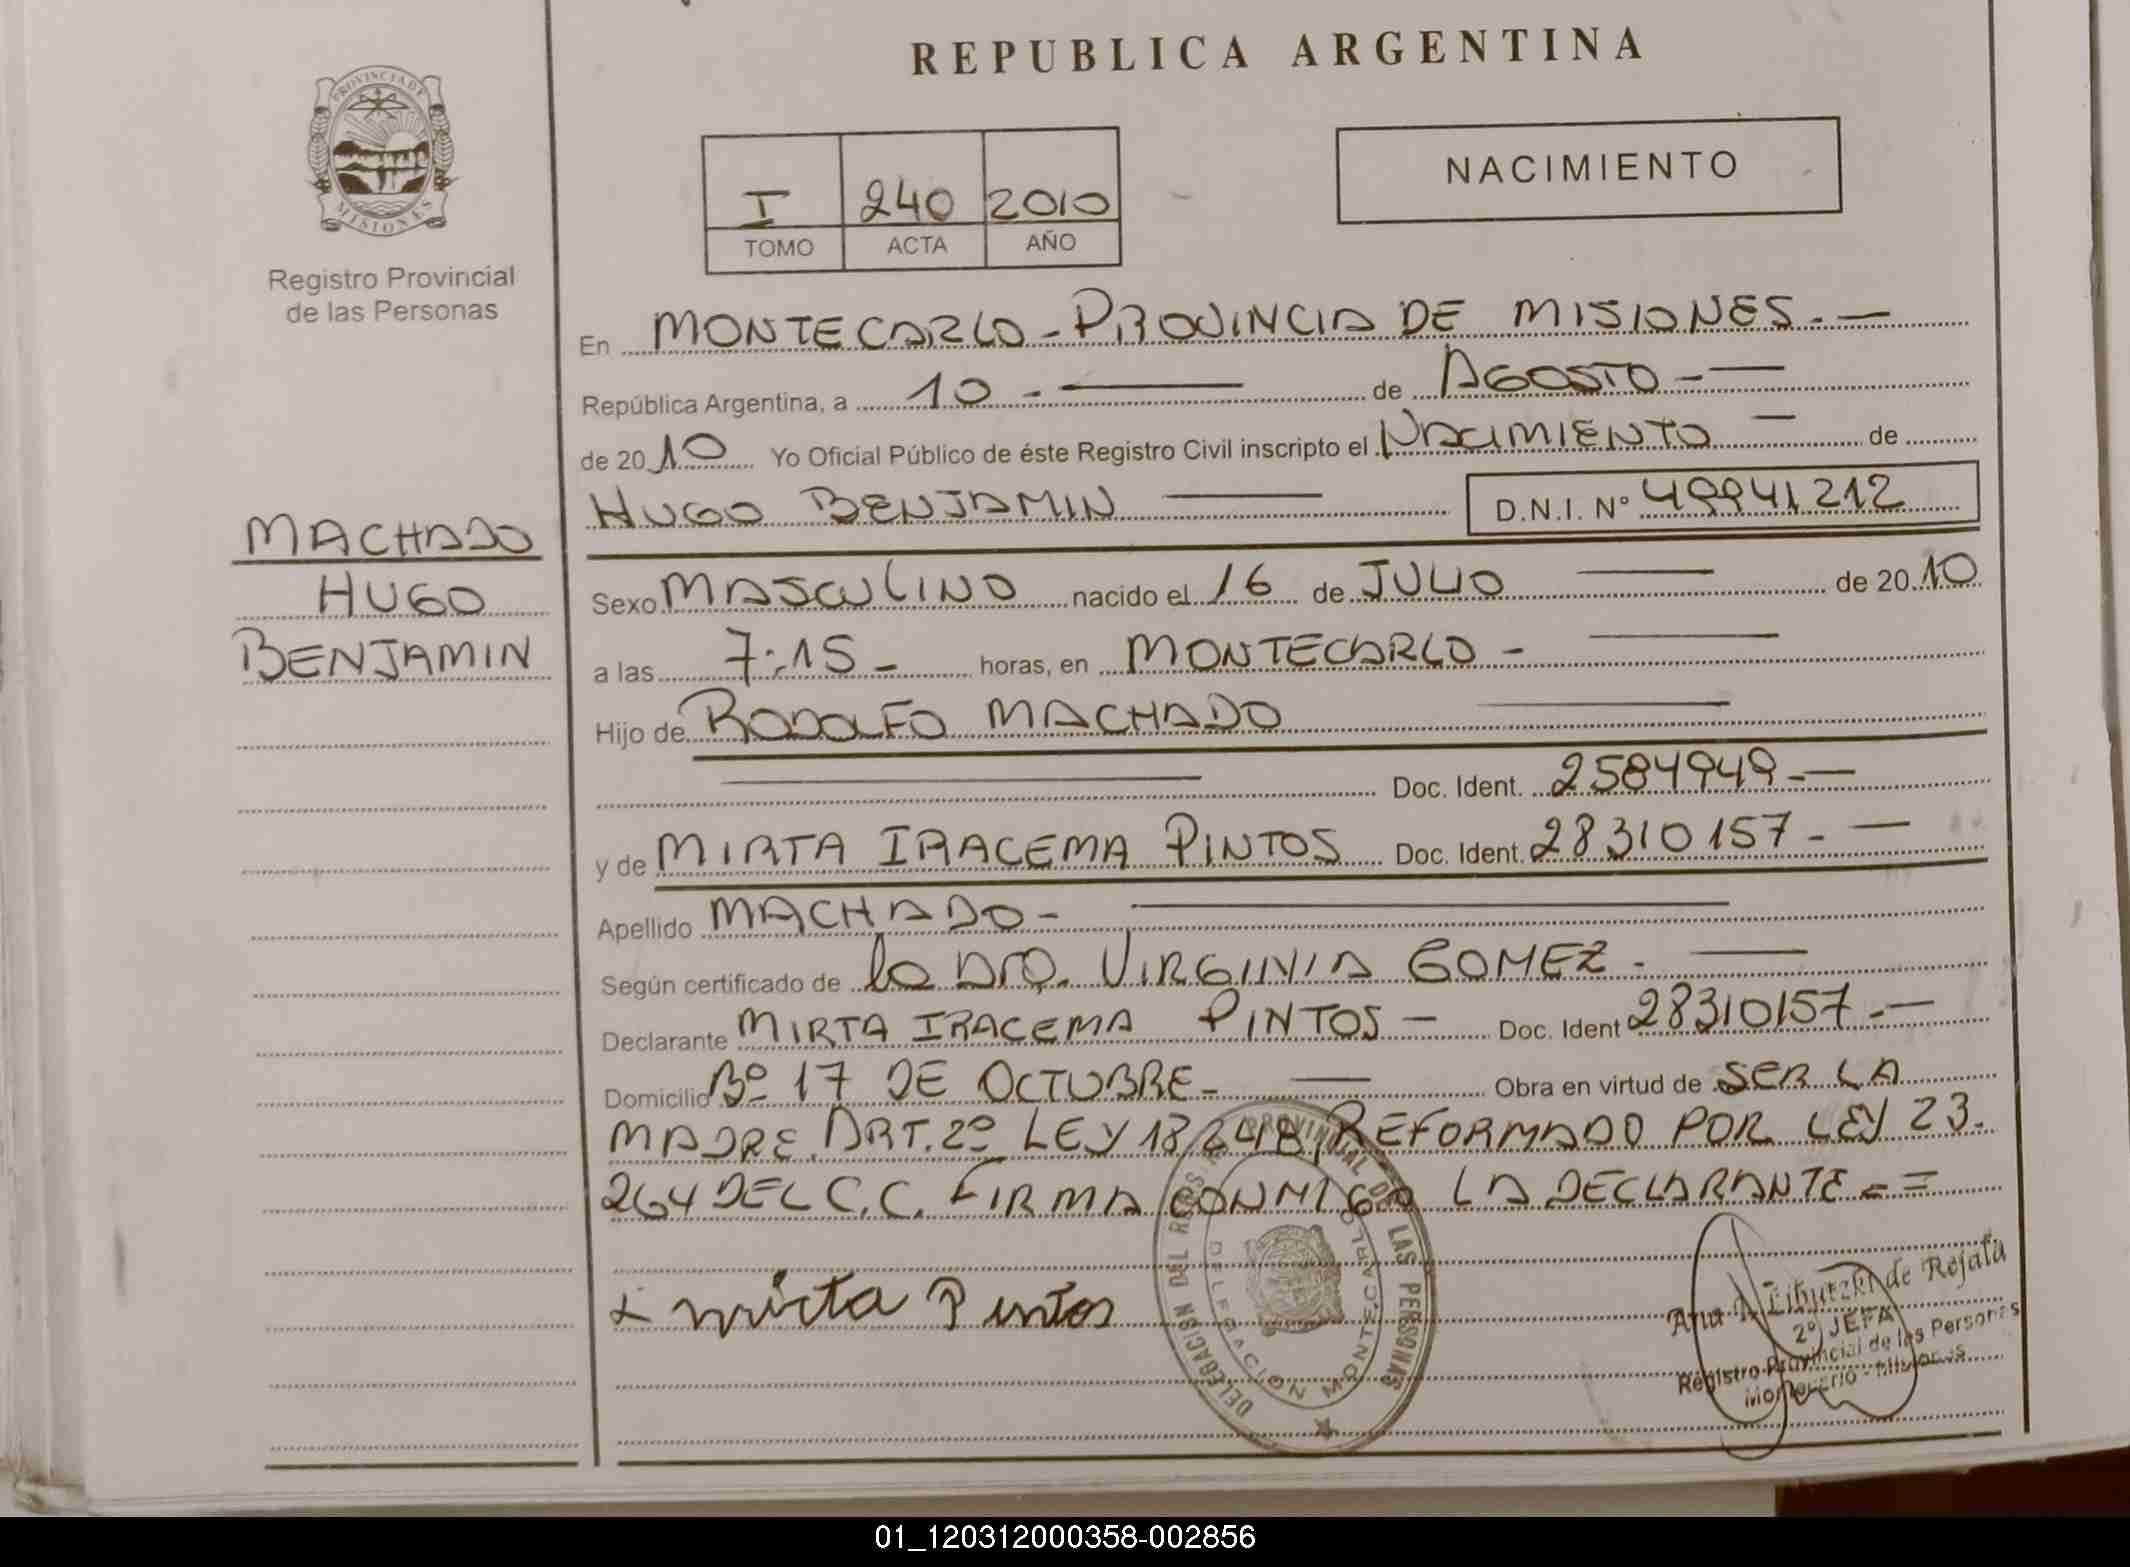 REPUBLICA ARGENTINA
PROVINCIA DE
MISIONES
Registro Provincial
de las Personas
NACIMIENTO
I 240 2010
TOMO ACTA AÑO
En MONTECARLO - PROVINCIA DE MISIONES. —
República Argentina, a 10 - — de AGOSTO - —
de 2010 Yo Oficial Público de éste Registro Civil inscripto el NACIMIENTO — de
HUGO BENJAMIN — D.N.I. Nº 49941212
MACHADO
HUGO
BENJAMIN
Sexo MASCULINO nacido el 16 de JULIO — de 2010
a las 7:15 - horas, en MONTECARLO - —
Hijo de RODOLFO MACHADO —
— Doc. Ident. 2584949 - —
y de MIRTA IRACEMA PINTOS Doc. Ident. 28310157 - —
Apellido MACHADO - —
Según certificado de la Dra. VIRGINIA GOMEZ - —
Declarante MIRTA IRACEMA PINTOS — Doc. Ident 28310157 - —
Domicilio Bº 17 DE OCTUBRE - — Obra en virtud de SER LA
MADRE. ART. 2º LEY 18248, REFORMADO POR LEY 23.
264 DEL C.C. FIRMA CONMIGO LA DECLARANTE = =
mirta Pintos
DELEGACION DEL REGISTRO PROVINCIAL DE LAS PERSONAS
DELEGACION MONTECARLO
de Rejala
2º JEFA
Registro Provincial de las Personas
Montecarlo - Misiones
01_120312000358-002856